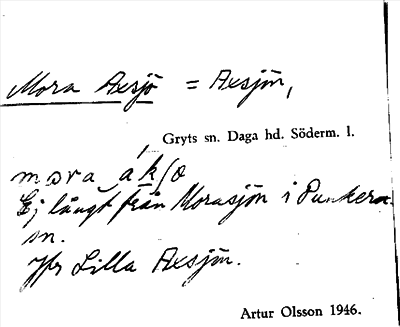 Mora Axsjö = Axsjön,
Gryts sn. Daga hd. Söderm. l.
mora áksö
Ej långt från Morasjön i Punkern
sn.
Jfr Lilla Axsjön.
Artur Olsson 1946.